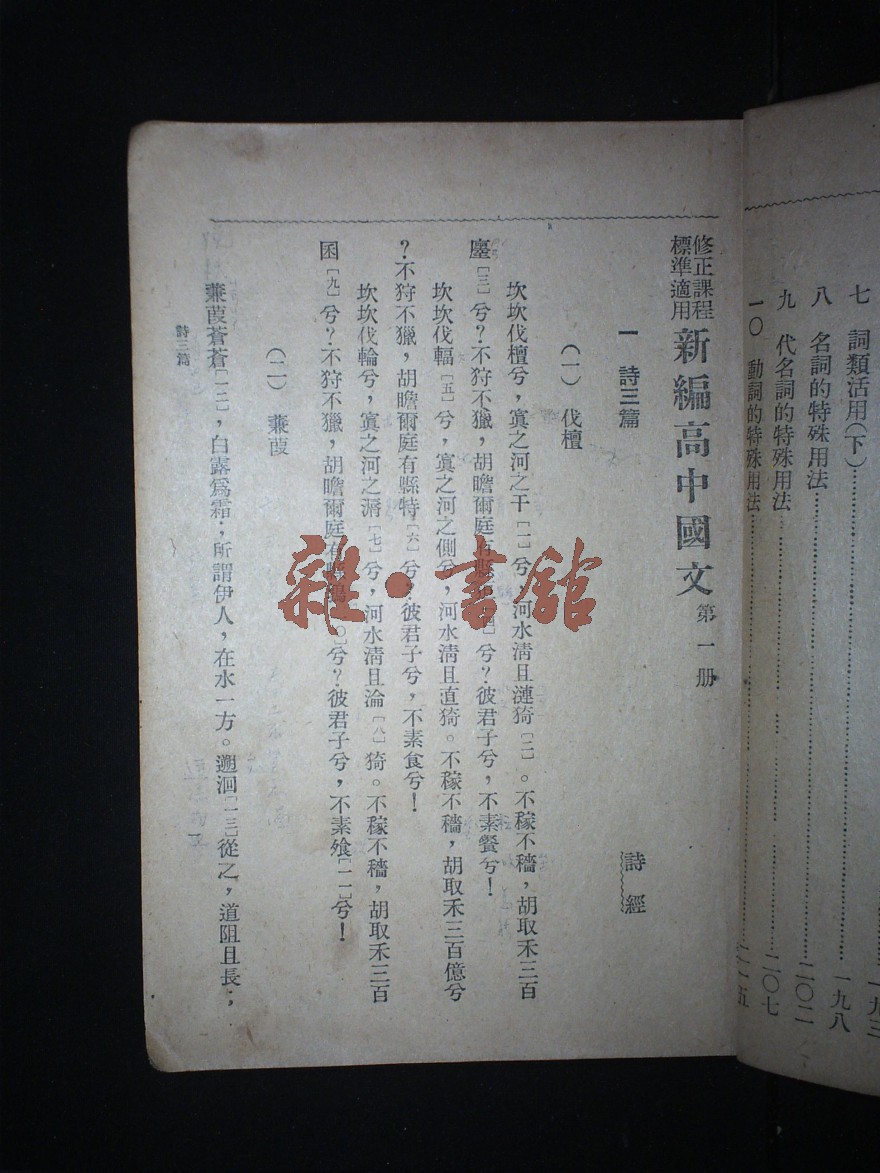 七　詞類活用(下)……一九三
八　名詞的特殊用法……一九八
九　代名詞的特殊用法……二〇二
一〇　動詞的特殊用法……二〇七
二一五
修正課程
標準適用
新編高中國文 第一册
一　詩三篇　詩經
(一)　伐檀
坎坎伐檀兮，寘之河之干[一]兮，河水清且漣猗[二]。不稼不穡，胡取禾三百
廛[三]兮？不狩不獵，胡瞻爾庭有縣[四]兮？彼君子兮，不素餐兮！
坎坎伐輻[五]兮，寘之河之側兮，河水清且直猗。不稼不穡，胡取禾三百億兮
？不狩不獵，胡瞻爾庭有縣特[六]兮？彼君子兮，不素食兮！
坎坎伐輪兮，寘之河之漘[七]兮，河水清且淪[八]猗。不稼不穡，胡取禾三百
囷[九]兮？不狩不獵，胡瞻爾庭有縣鶉[一〇]兮？彼君子兮，不素飧[一一]兮！
(二)　蒹葭
蒹葭蒼蒼[一二]，白露爲霜；所謂伊人，在水一方。遡洄[一三]從之，道阻且長；，
詩三篇
一
雜·書館